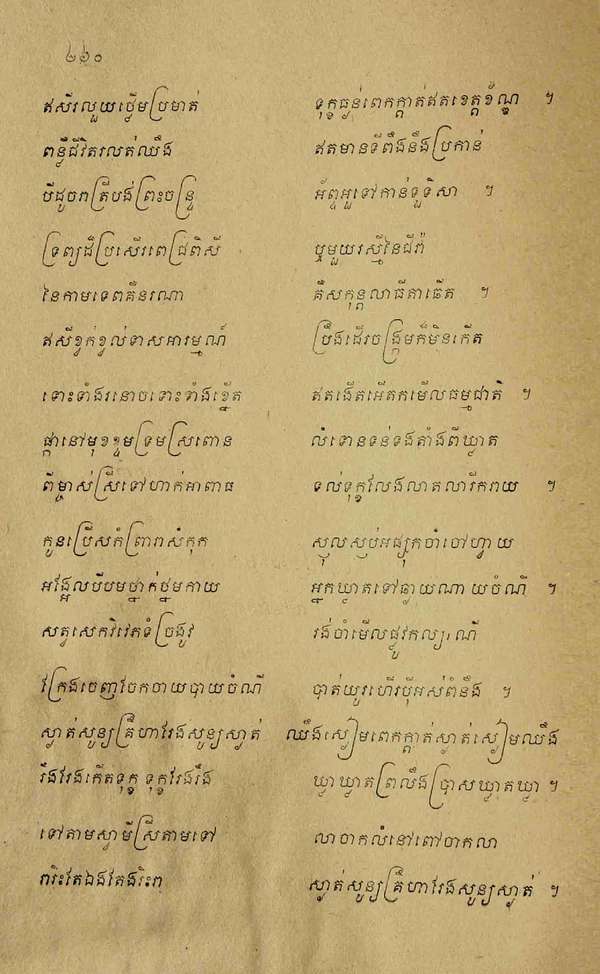 ៤៦០
ឥសីរលួយថ្វើមប្រមាត់ ទុក្ខធ្ងន់ពេកក្អាត់ឥតខេត្តខ័ណ្ឌ ។
ពន្លឺជីវិតរលត់ឈឹង ឥតមានទីពឹងនឹងប្រកាន់
បីដូចរាត្រីបង់ព្រះចន្ទ្រ អ័ព្ទអួទៅកាន់ទួទិសា ។
ទ្រព្យដ៏ប្រសើរពេជ្រពិសី ឬមួយរស្មីនៃជីវ៉ា
នៃកាមទេពគឺនរណា គឺសកុន្តលាធីតាឆើត ។
ឥសីខ្វក់ខ្វល់ទាសអារម្មណ៍ ប្រឹងដើរចង្ក្រមក៏មិនកើត
ទោះទាំងរនោចទោះទាំងខ្នើត ឥតងើតអើតកមើលធម្មជាតិ ។
ផ្កានៅមុខខ្ទមទ្រមស្រពោន លំទោនទន់ទងតាំងពីឃ្លាត
ពីម្ចាស់ស្រីទៅហាក់អាពាធ ទល់ទុក្ខលែងលាតលារីករាយ ។
កូនប្រើសកំព្រារាសំកុក ស្មុលស្មប់អផ្សុកចាំចៅហ្វាយ
អង្អែលបីបមថ្នាក់ថ្នមកាយ អ្នកឃ្លាតទៅឆ្ងាយណាយចំណី ។
សត្វសេកវិវេកទំច្រងូវ រង់ចាំមើលផ្លូវកល្យាណី
ក្រែងចេញចែកចាយបាយចំណី បាត់យូរហើរប៉ីអស់ពំនឹង ។
ស្ងាត់សូន្យគ្រឹហារែងសូន្យស្ងាត់ ឈឹងស្ងៀមពេកក្អាត់ស្ងាត់ស្ងៀមឈឹង
រឹងរែងកើតទុក្ខ ទុក្ខរែងរឹង ឃ្លាឃ្លាតព្រលឹងប្រាសឃ្លាតឃ្លា ។
ទៅតាមស្វាមីស្រីតាមទៅ លាចាកលំនៅពៅចាកលា
រារិះតែឯងតែងរិះរា ស្ងាត់សូន្យគ្រឹហារែងសូន្យស្ងាត់ ។